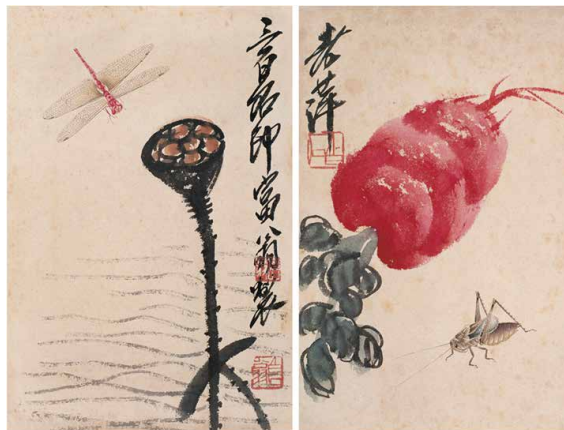 三百石印富翁製
老萍